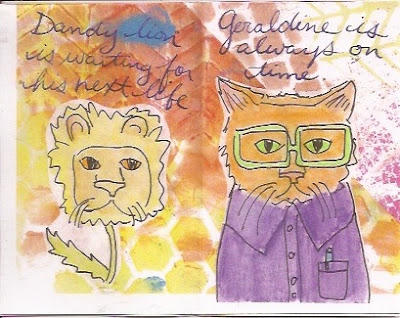 Dandy lion
is waiting for
his next life
Geraldine is
always on
time.